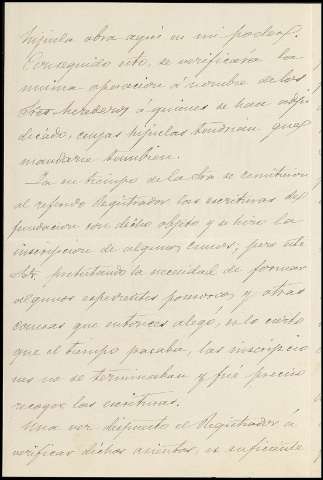 hijuela obra aquí en mi poder.
Conseguido esto, se verificará la
misma operacion á nombre de los
Sres herederos á quienes se haya adju
dicado, cuyas hijuelas tendrian que
mandarse tambien.
Ya en tiempo de la Sra se remitieron
al referido Registrador las escrituras de
fundacion con dicho objeto y se hizo la
inscripcion de algunos censos; pero este
Sr. pretestando la necesidad de formar
algunos espedientes posesorios y otras
causas que entonces alegó, es lo cierto
que el tiempo pasaba, las inscripcio
nes no se terminaban y fué preciso
recoger las escrituras.
Una vez dispuesto el Registrador á
verificar dichos asientos, es suficiente